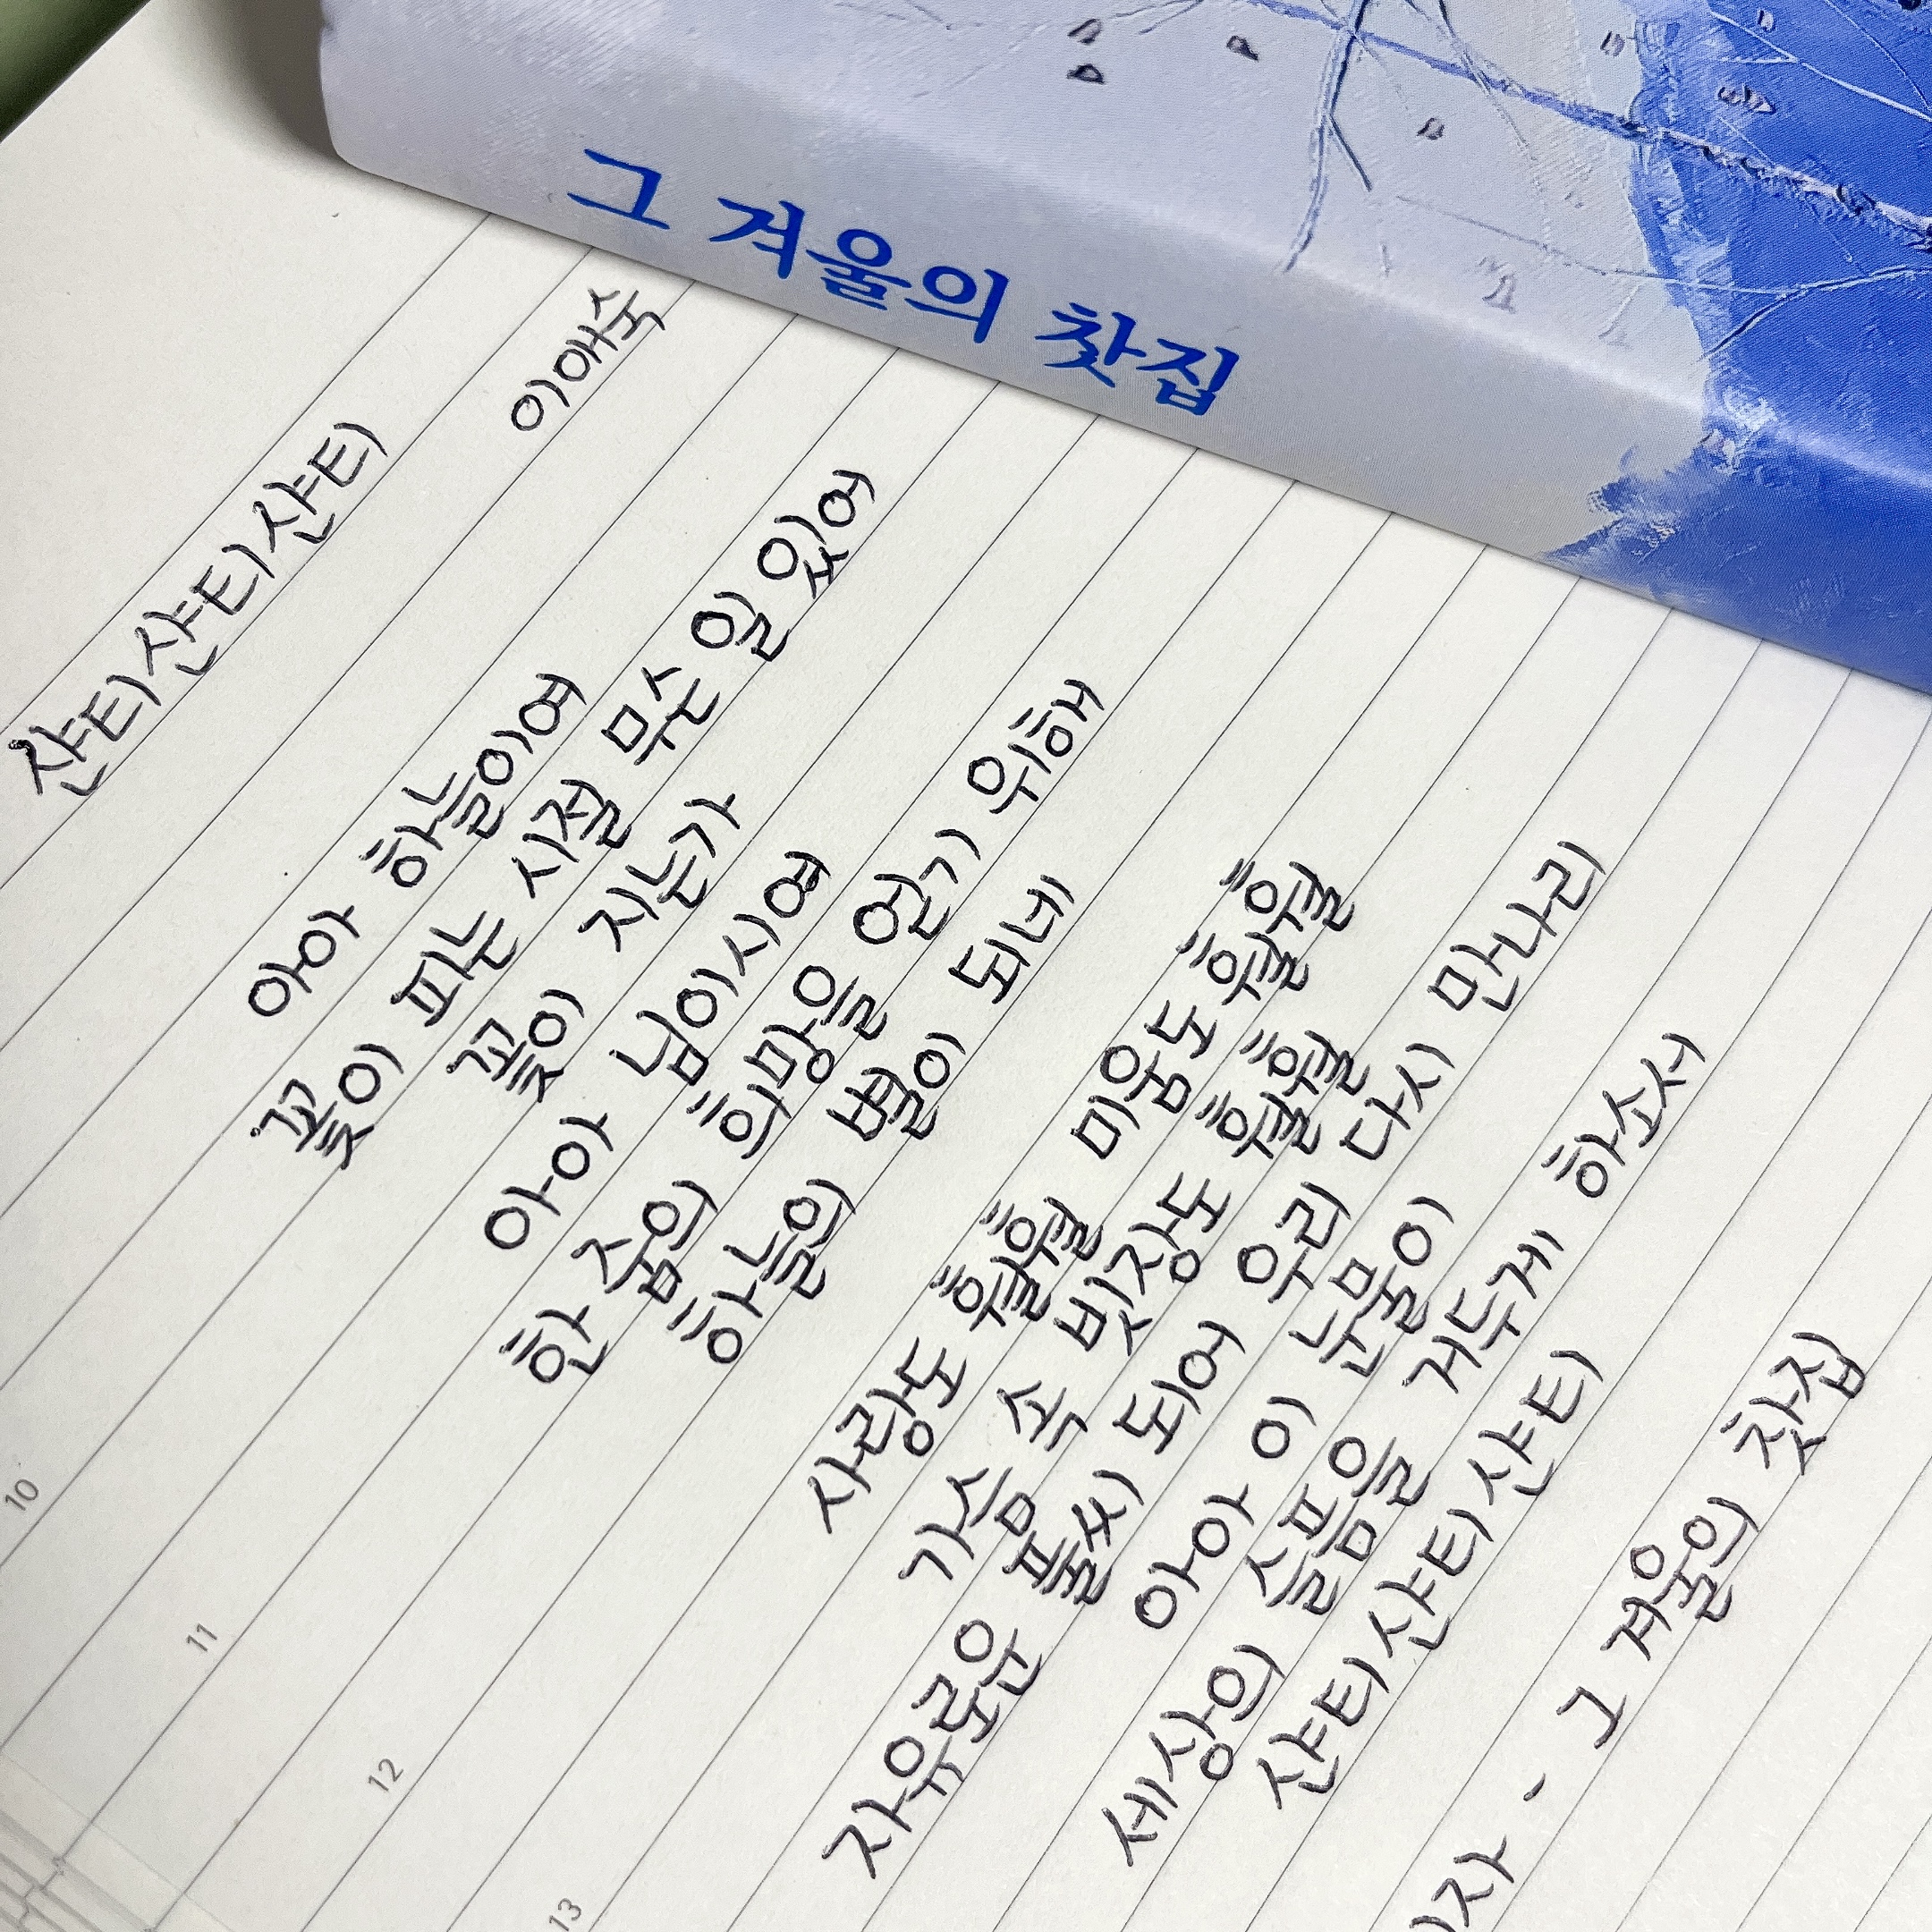 그 겨울의 찻집
샨티샨티샨티
이애숙
아아 하늘이여
꽃이 피는 시절 무슨 일 있어
꽃이 지는가
아아 님이시여
한 줌의 희망을 얻기 위해
하늘의 별이 되네
사랑도 훨훨 미움도 훨훨
가슴 속 빗장도 훨훨
자유로운 풀씨 되어 우리 다시 만나리
아아 이 눈물이
세상의 슬픔을 거두게 하소서
샨티샨티샨티
- 그 겨울의 찻집
10
11
12
13